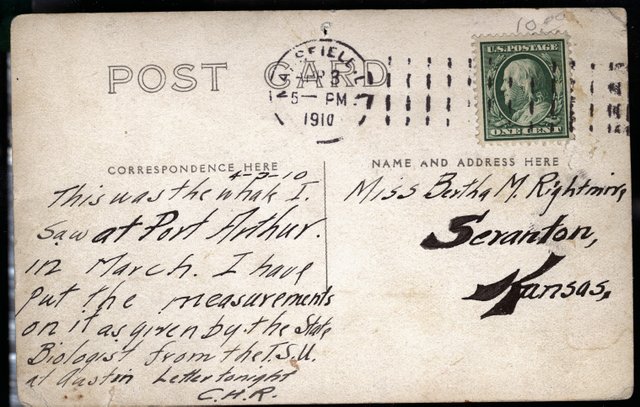 10.00
POST CARD
5-PM
1910
U.S. POSTAGE
ONE CENT
CORRESPONDENCE HERE
NAME AND ADDRESS HERE
This was the whale I.
Saw at Port Arthur.
in March. I have
put the measurements
on it as given by the State
Biologist from the T.S.U.
at Austin Letter tonight
C.H.R.
Miss Bertha M. Rightmire,
Scranton,
Kansas,